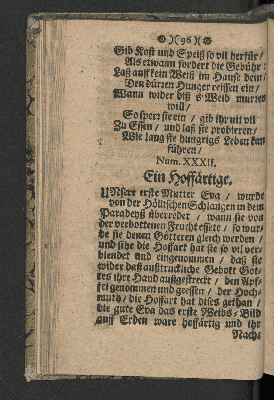 )( 96 )(
Gib Kost und Speiß so vil herfür /
Als etwann fordert die Gebühr:
Laß auff kein Weiß im Hauß dein /
Den dürren Hunger reissen ein /
Wann wider diß s' Weib murren
will /
So sperr sie ein / gib ihr nit vil
Zu Essen / und laß sie probieren /
Wie lang sie hungrigs Leben kan
führen /
Num. XXXII.
Ein Hoffärtige.
UNsere erste Mutter Eva / wurde
von der Höllischen Schlangen in dem
Paradeyß überredet / wann sie von
der verbottenen Frucht esßete / so wur-
de sie denen Götteren gleich werden /
und sihe die Hoffart hat sie so vil ver-
blendet und eingenommen / daß sie
wider daß außtruckliche Gebott Got-
tes ihre Hand außgestreckt / den Apf-
fel genommen und geessen / der Hoch-
muth / die Hoffart hat dises gethan /
die gute Eva das erste Weibs-Bild
auff Erden ware hoffärtig und ihr
Nach-